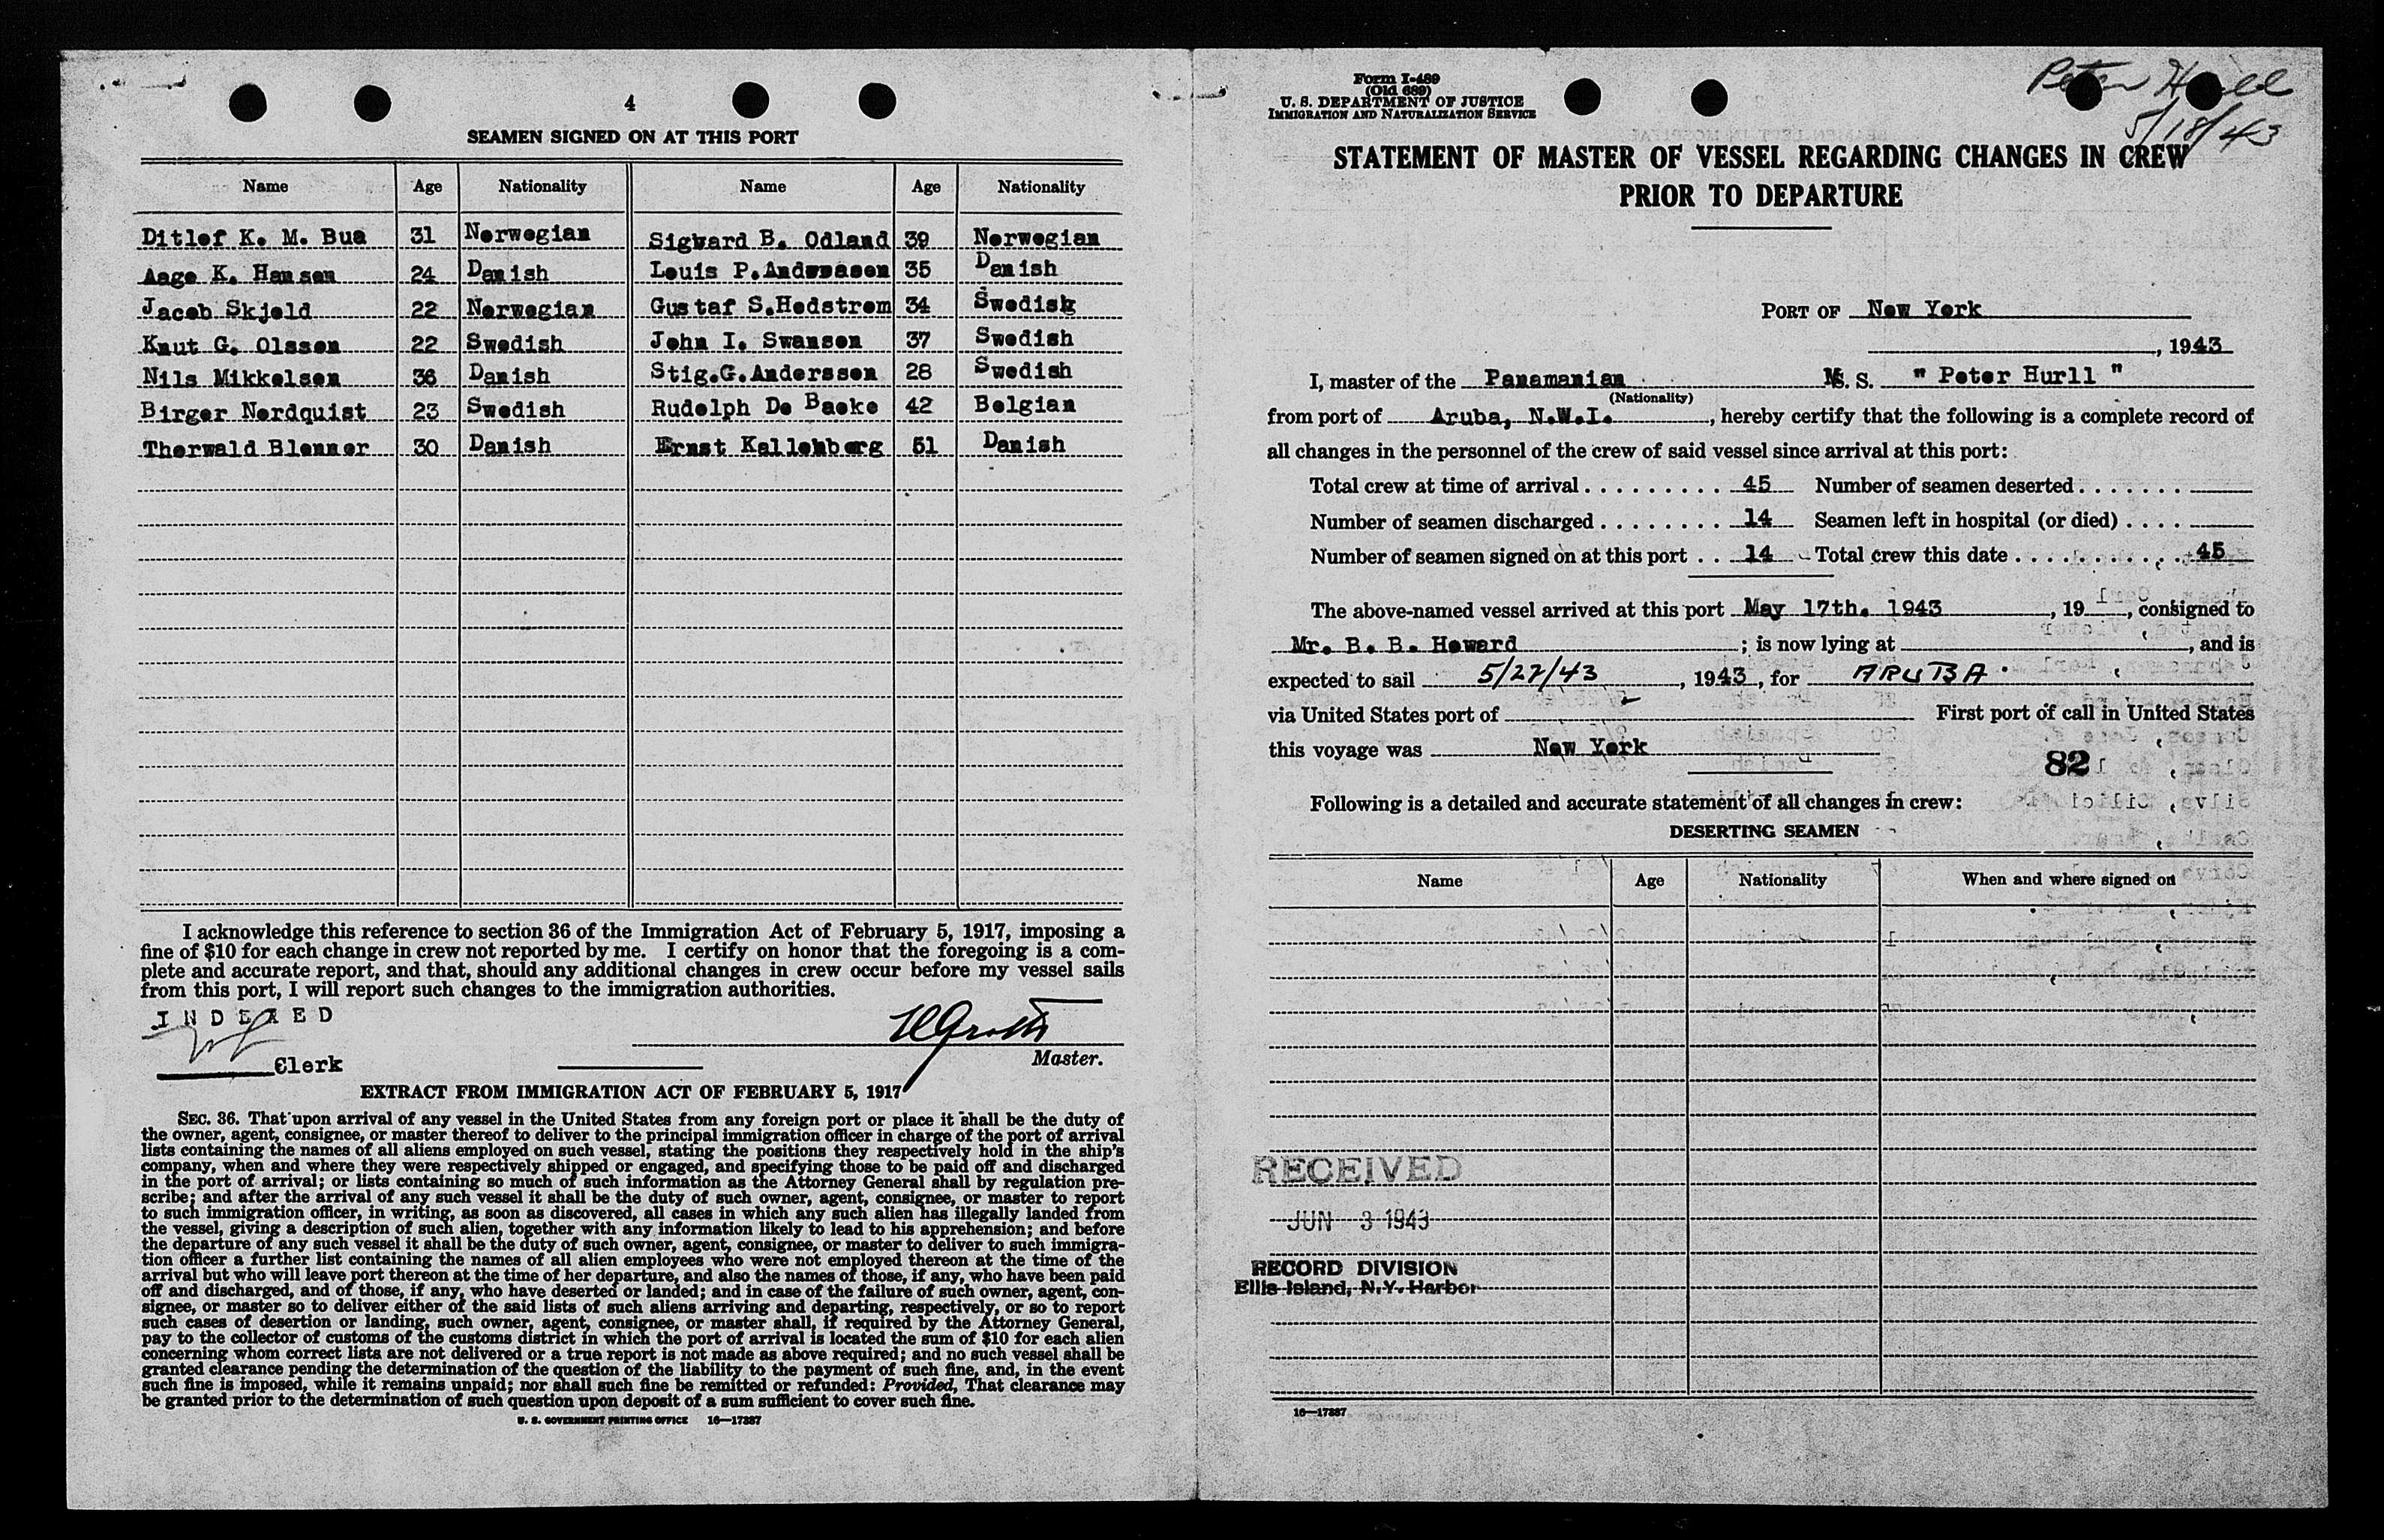 4
SEAMEN SIGNED ON AT THIS PORT
Name Age Nationality Name Age Nationality
Ditlef K. M. Bua 31 Norwegian Sigvard B. Odland 39 Norwegian
Aage K. Hansen 24 Danish Louis P. Andreasen 35 Danish
Jacob Skjeld 22 Norwegian Gustaf S. Hedstrom 34 Swedish
Knut G. Olssen 22 Swedish John I. Swanson 37 Swedish
Nils Mikkelsen 36 Danish Stig. G. Anderssen 28 Swedish
Birger Nordquist 23 Swedish Rudolph De Backe 42 Belgian
Thorwald Blenner 30 Danish Ernst Kallenberg 51 Danish
I acknowledge this reference to section 36 of the Immigration Act of February 5, 1917, imposing a
fine of $10 for each change in crew not reported by me. I certify on honor that the foregoing is a com-
plete and accurate report, and that, should any additional changes in crew occur before my vessel sails
from this port, I will report such changes to the immigration authorities.
INDEXED
Clerk
Master.
EXTRACT FROM IMMIGRATION ACT OF FEBRUARY 5, 1917
SEC. 36. That upon arrival of any vessel in the United States from any foreign port or place it shall be the duty of
the owner, agent, consignee, or master thereof to deliver to the principal immigration officer in charge of the port of arrival
lists containing the names of all aliens employed on such vessel, stating the positions they respectively hold in the ship's
company, when and where they were respectively shipped or engaged, and specifying those to be paid off and discharged
in the port of arrival; or lists containing so much of such information as the Attorney General shall by regulation pre-
scribe; and after the arrival of any such vessel it shall be the duty of such owner, agent, consignee, or master to report
to such immigration officer, in writing, as soon as discovered, all cases in which any such alien has illegally landed from
the vessel, giving a description of such alien, together with any information likely to lead to his apprehension; and before
the departure of any such vessel it shall be the duty of such owner, agent, consignee, or master to deliver to such immigra-
tion officer a further list containing the names of all alien employees who were not employed thereon at the time of the
arrival but who will leave port thereon at the time of her departure, and also the names of those, if any, who have been paid
off and discharged, and of those, if any, who have deserted or landed; and in case of the failure of such owner, agent, con-
signee, or master so to deliver either of the said lists of such aliens arriving and departing, respectively, or so to report
such cases of desertion or landing, such owner, agent, consignee, or master shall, if required by the Attorney General,
pay to the collector of customs of the customs district in which the port of arrival is located the sum of $10 for each alien
concerning whom correct lists are not delivered or a true report is not made as above required; and no such vessel shall be
granted clearance pending the determination of the question of the liability to the payment of such fine, and, in the event
such fine is imposed, while it remains unpaid; nor shall such fine be remitted or refunded: Provided, That clearance may
be granted prior to the determination of such question upon deposit of a sum sufficient to cover such fine.
U. S. GOVERNMENT PRINTING OFFICE 16—17387
Form I-489
(Old 689)
U. S. DEPARTMENT OF JUSTICE
IMMIGRATION AND NATURALIZATION SERVICE
Peter
5/18/43
STATEMENT OF MASTER OF VESSEL REGARDING CHANGES IN CREW
PRIOR TO DEPARTURE
PORT OF New York
, 1943
I, master of the Panamanian M. S. " Peter Hurll "
(Nationality)
from port of Aruba, N.W.I. , hereby certify that the following is a complete record of
all changes in the personnel of the crew of said vessel since arrival at this port:
Total crew at time of arrival . . . . . . . . . . 45 Number of seamen deserted . . . . . . .
Number of seamen discharged . . . . . . . . 14 Seamen left in hospital (or died) . . . .
Number of seamen signed on at this port . . 14 Total crew this date . . . . . . . . . . . . 45
The above-named vessel arrived at this port May 17th. 1943 , 19 , consigned to
Mr. B. B. Howard ; is now lying at , and is
expected to sail 5/22/43 , 1943, for ARUBA.
via United States port of First port of call in United States
this voyage was New York
82
Following is a detailed and accurate statement of all changes in crew:
DESERTING SEAMEN
Name Age Nationality When and where signed on
RECEIVED
JUN 3 1943
RECORD DIVISION
Ellis Island, N.Y. Harbor
16—17387